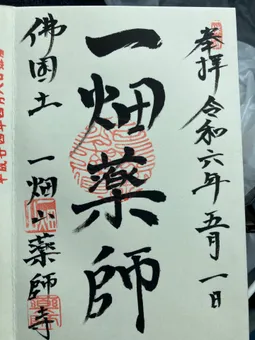 奉拝 令和六年五月一日
一畑薬師
佛国土 一畑山薬師寺